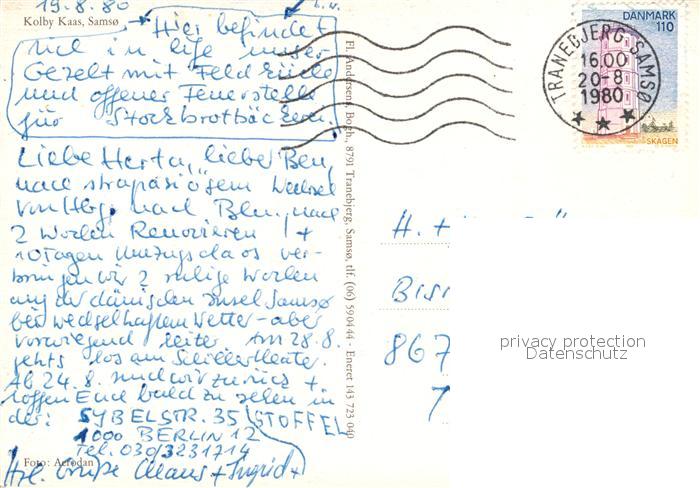 19.8.80
Kolby Kaas, Samsø
Hier befindet
sich in life unser
Gezelt mit Feldküche
und offener Feuerstelle
für Stockbrotbäckerei.
Liebe Herta, lieber Ben,
nach strapaziösem Wechsel
von Hbg. nach Bln., nach
2 Wochen Renovieren +
10 Tagen Umzugschaos ver-
bringen wir 2 ruhige Wochen
auf der dänischen Insel Samsø
bei wechselhaftem Wetter - aber
vorwiegend heiter. Am 28.8.
gehts los am Schillertheater.
Ab 24.8. sind wir zurück +
hoffen Euch bald zu sehen in
der: SYBELSTR. 35 STOFFEL
1000 BERLIN 12
Tel. 030/3231714
Hzl. Grüße Claus + Ingrid +
Foto: Aerodan
Fl. Andersens Bogh., 8791 Tranebjerg, Samsø, tlf. (06) 590444 - Eneret 143 723 040
DANMARK
110
SKAGEN
TRANEBJERG SAMSØ
16.00
20-8
1980
H.
867
privacy protection
Datenschutz